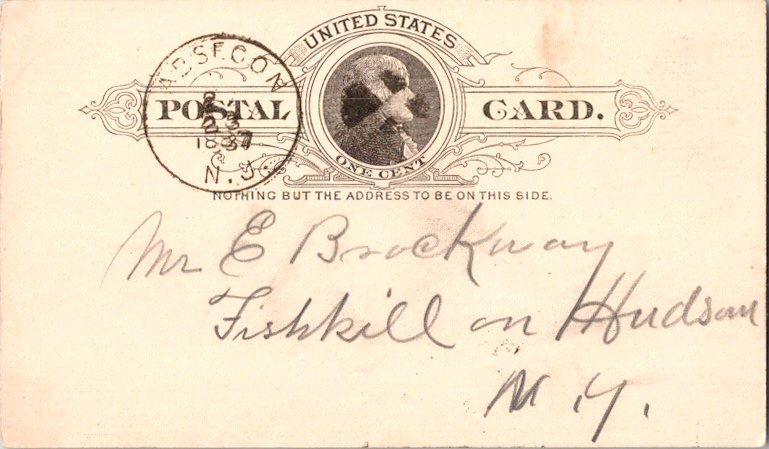 UNITED STATES
POSTAL CARD.
ONE CENT
NOTHING BUT THE ADDRESS TO BE ON THIS SIDE.
ABSECON
N.J.
Mr E Brockway
Fishkill on Hudson
N.Y.